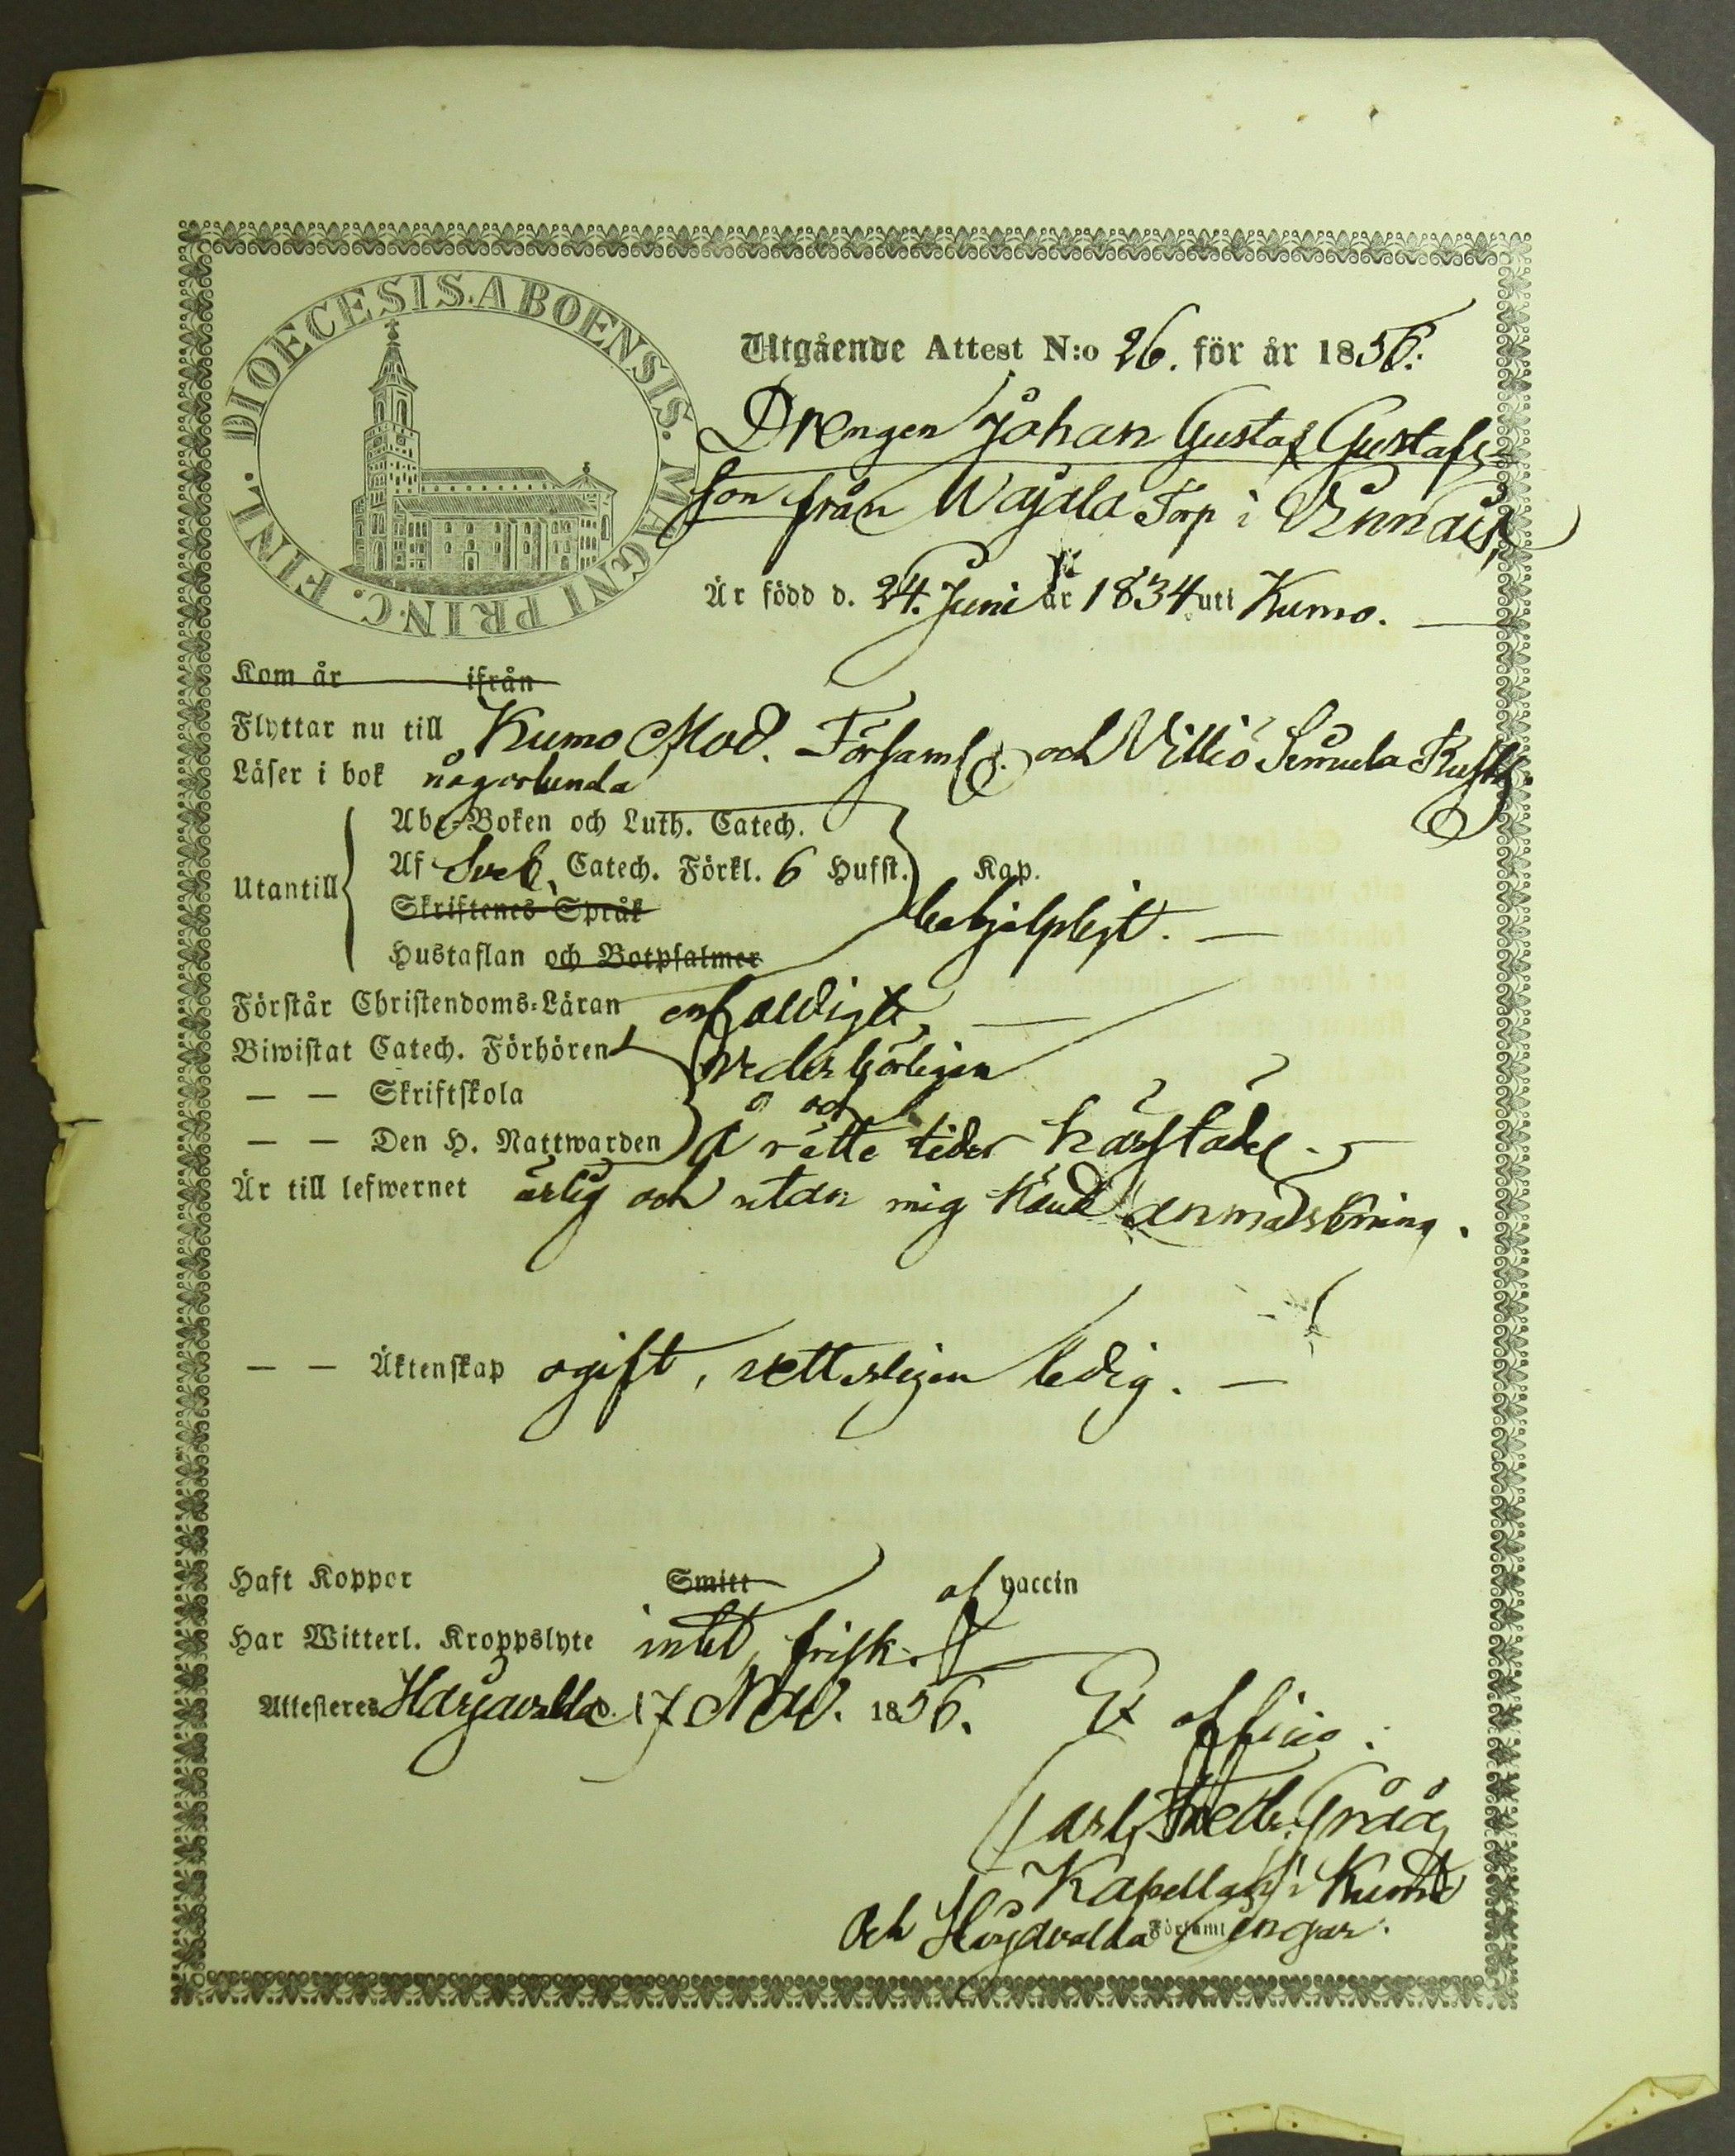 DIOECESIS. ABOENSIS. MAGNI PRINC. FINL.
Utgående Attest N:o 26. för år 1856.
Drengen Johan Gustaf Gustafs
son från Wajala Torp i
Är född d. 24. Juni år 1834 uti Kumo.
Kom år ifrån
Flyttar nu till Kumo Mod. Församlg. och Villiö Simula Rusth.
Läser i bok någorlunda
Abc-Boken och Luth. Catech.
Utantill Af Sveb. Catech. Förkl. 6 Hufst. Kap.
Skriftenes Språk behjelpligt.
Hustaflan och Botpsalmer
Förstår Christendoms-Läran enfaldigt,
Biwistat Catech. Förhören vederbörligen
— — Skriftskola och
— — Den H. Nattwarden å rätte tider härstädes.
Är till lefwernet ärlig och utan mig känd anmärkning.
— — Äktenskap ogift, rettsligen ledig.
Haft Koppor Smitt af vaccin
Har Witterl. Kroppslyte intet, frisk.
Attesteres Harjavalda d. 17 Nov. 1856. Ex officio:
Carl Fredr. Gråå
Kapellan i Kumo
och Harjavalda Församlingar.